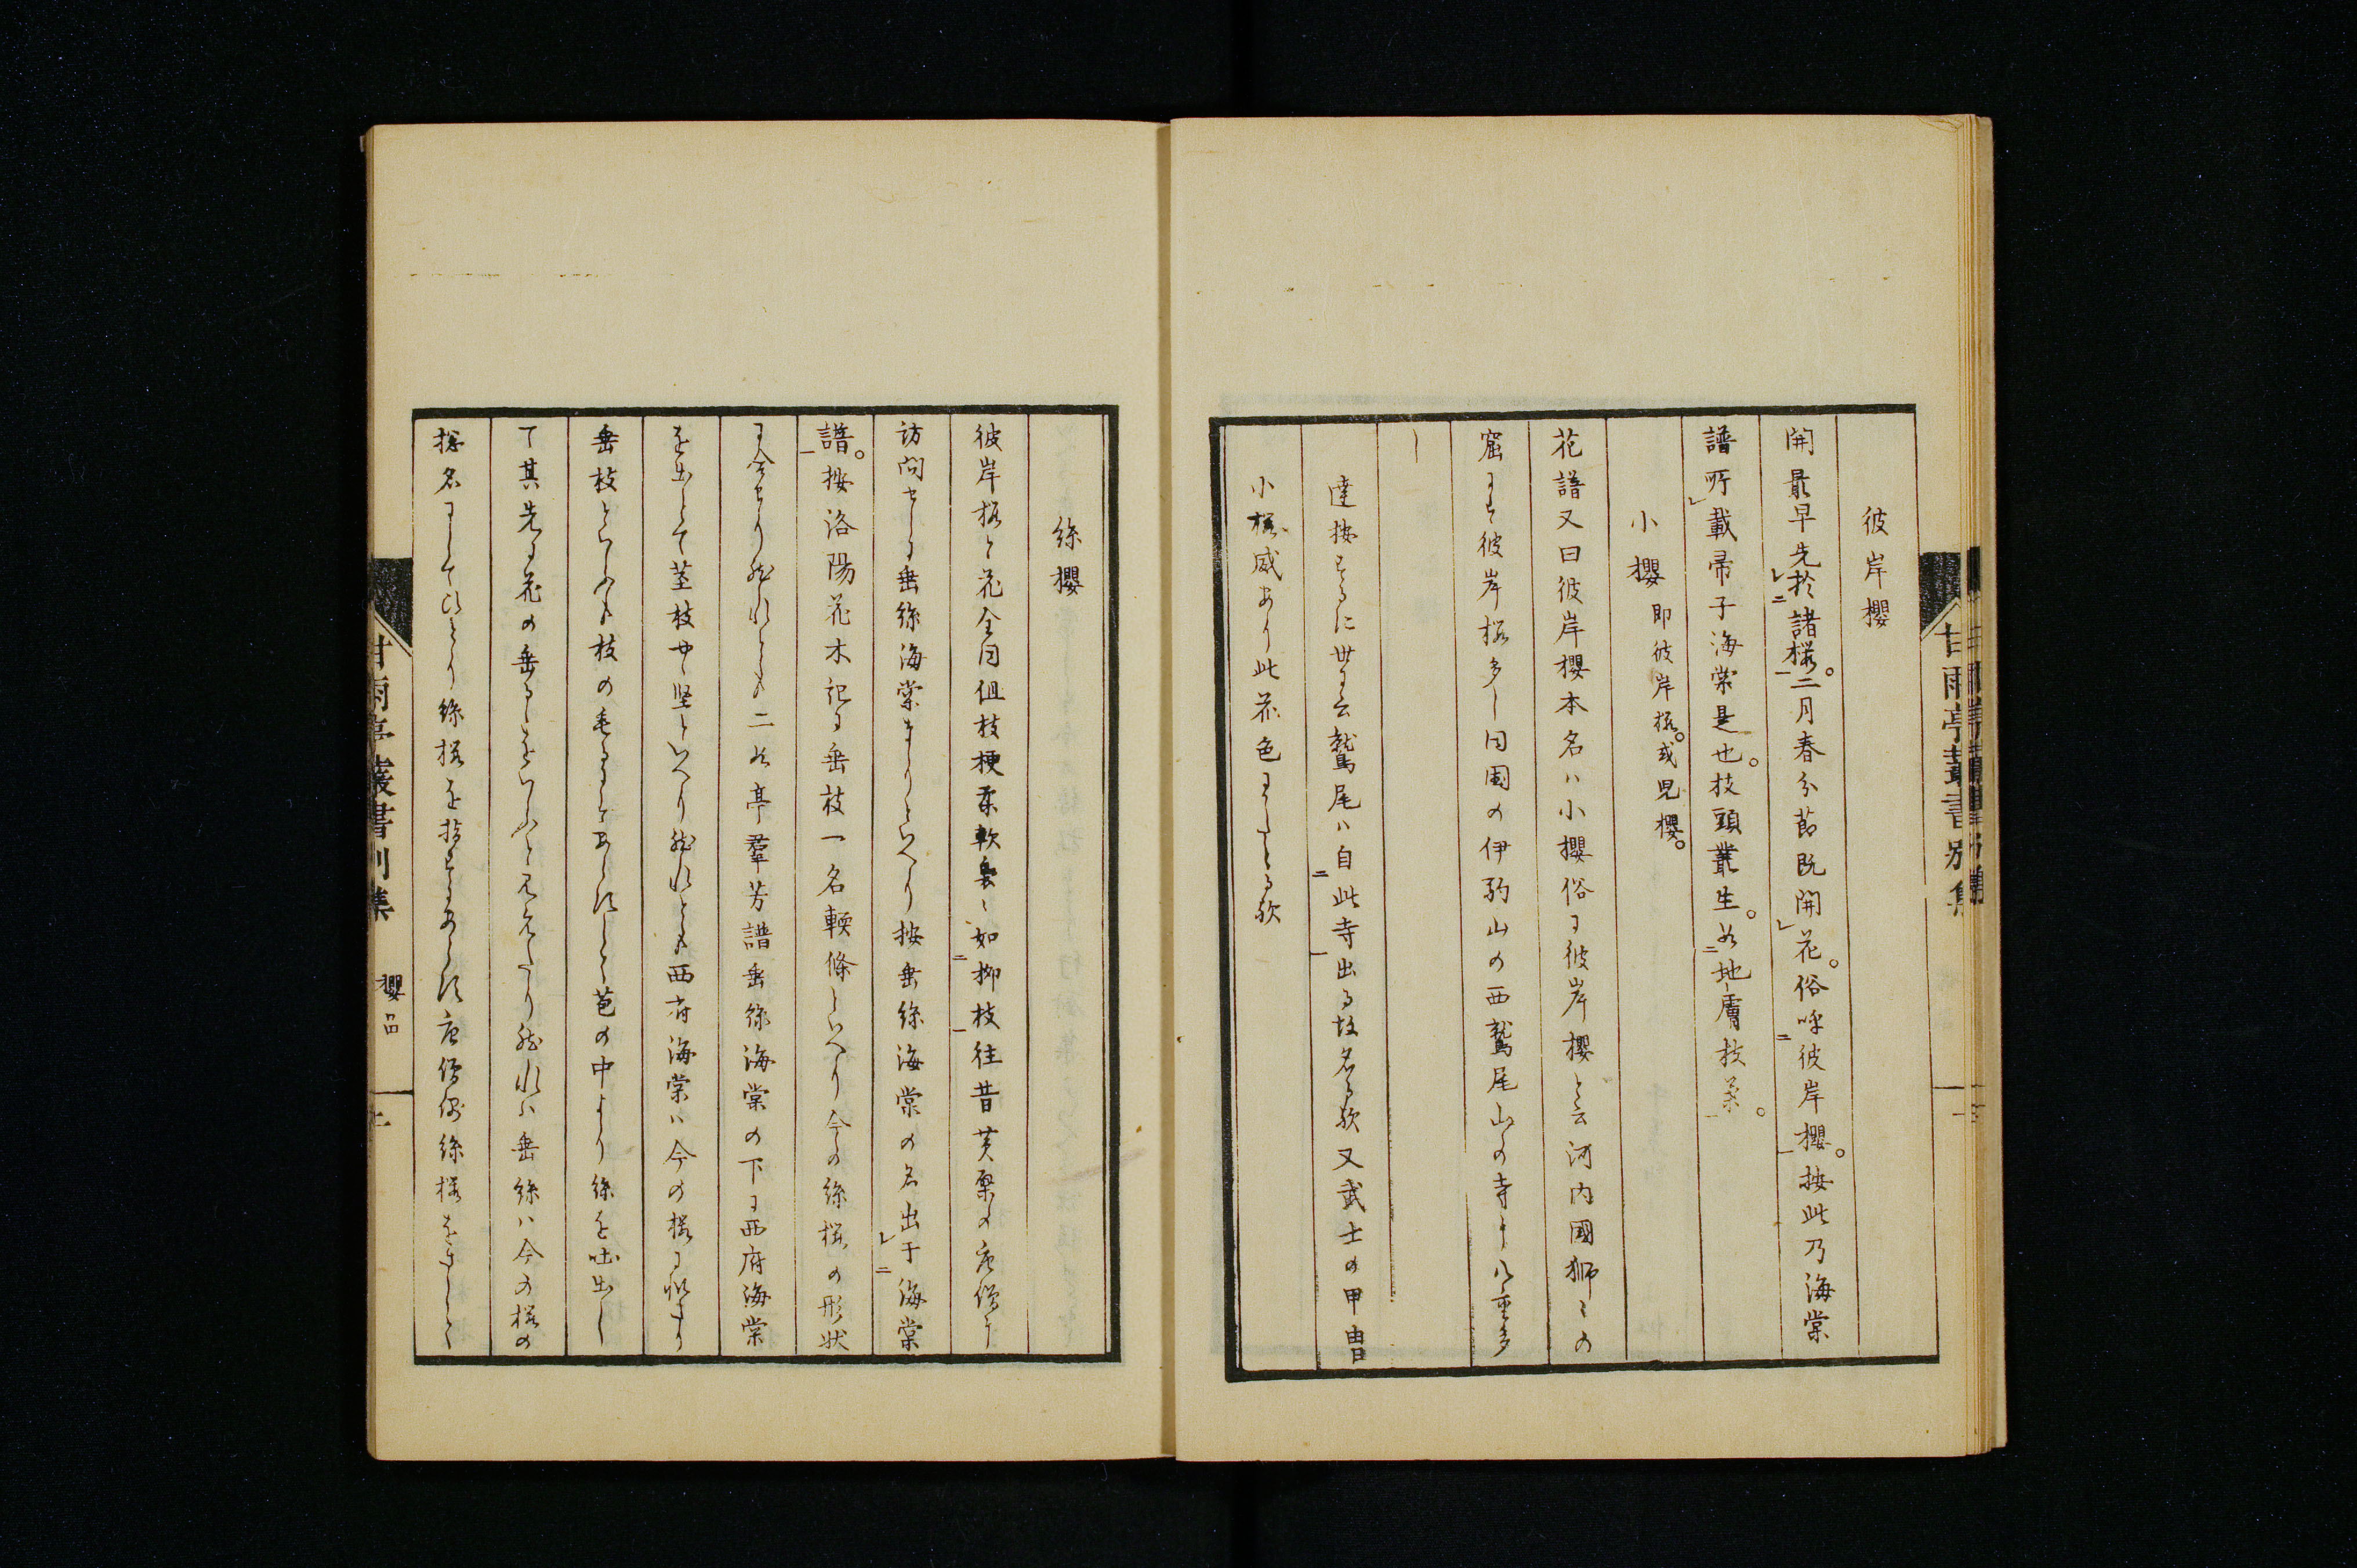 彼岸櫻
開最早先於諸櫻。二月春分節既開花。俗呼彼岸櫻。按此乃海棠
譜所載帚子海棠是也。枝頭叢生。如地膚枝葉。
小櫻 即彼岸桜。或児櫻。
花譜又曰彼岸櫻本名ハ小櫻俗に彼岸櫻と云河内國獅々の
窟にも彼岸桜多し同国の伊駒山の西鷲尾山の寺に八重多
し
達按するに世に云鷲尾ハ自此寺出る故名る歟又武士の甲冑
小桜威あり此花色にしたる歟
甘雨亭叢書別集
絲櫻
彼岸桜と花全同但枝梗柔軟裊々如柳枝往昔黄檗の唐僧に
訪問せしに垂絲海棠なりといへり按垂絲海棠の名出于海棠
譜。按洛陽花木記に垂枝一名軟條といへり今の絲桜の形状
に合せり然れとも二如亭羣芳譜垂絲海棠の下に西府海棠
を出して茎枝やゝ堅しといへり然れとも西府海棠ハ今の桜に似たり
垂枝といふも枝の垂るゝにあらすして苞の中より絲を吐出し
て其先に花の垂るゝをいふと見えたり然れハ垂絲ハ今の桜の
捴名にしてひとり絲桜を指すにあらす唐僧偶絲桜をさして
甘雨亭叢書別集 櫻品